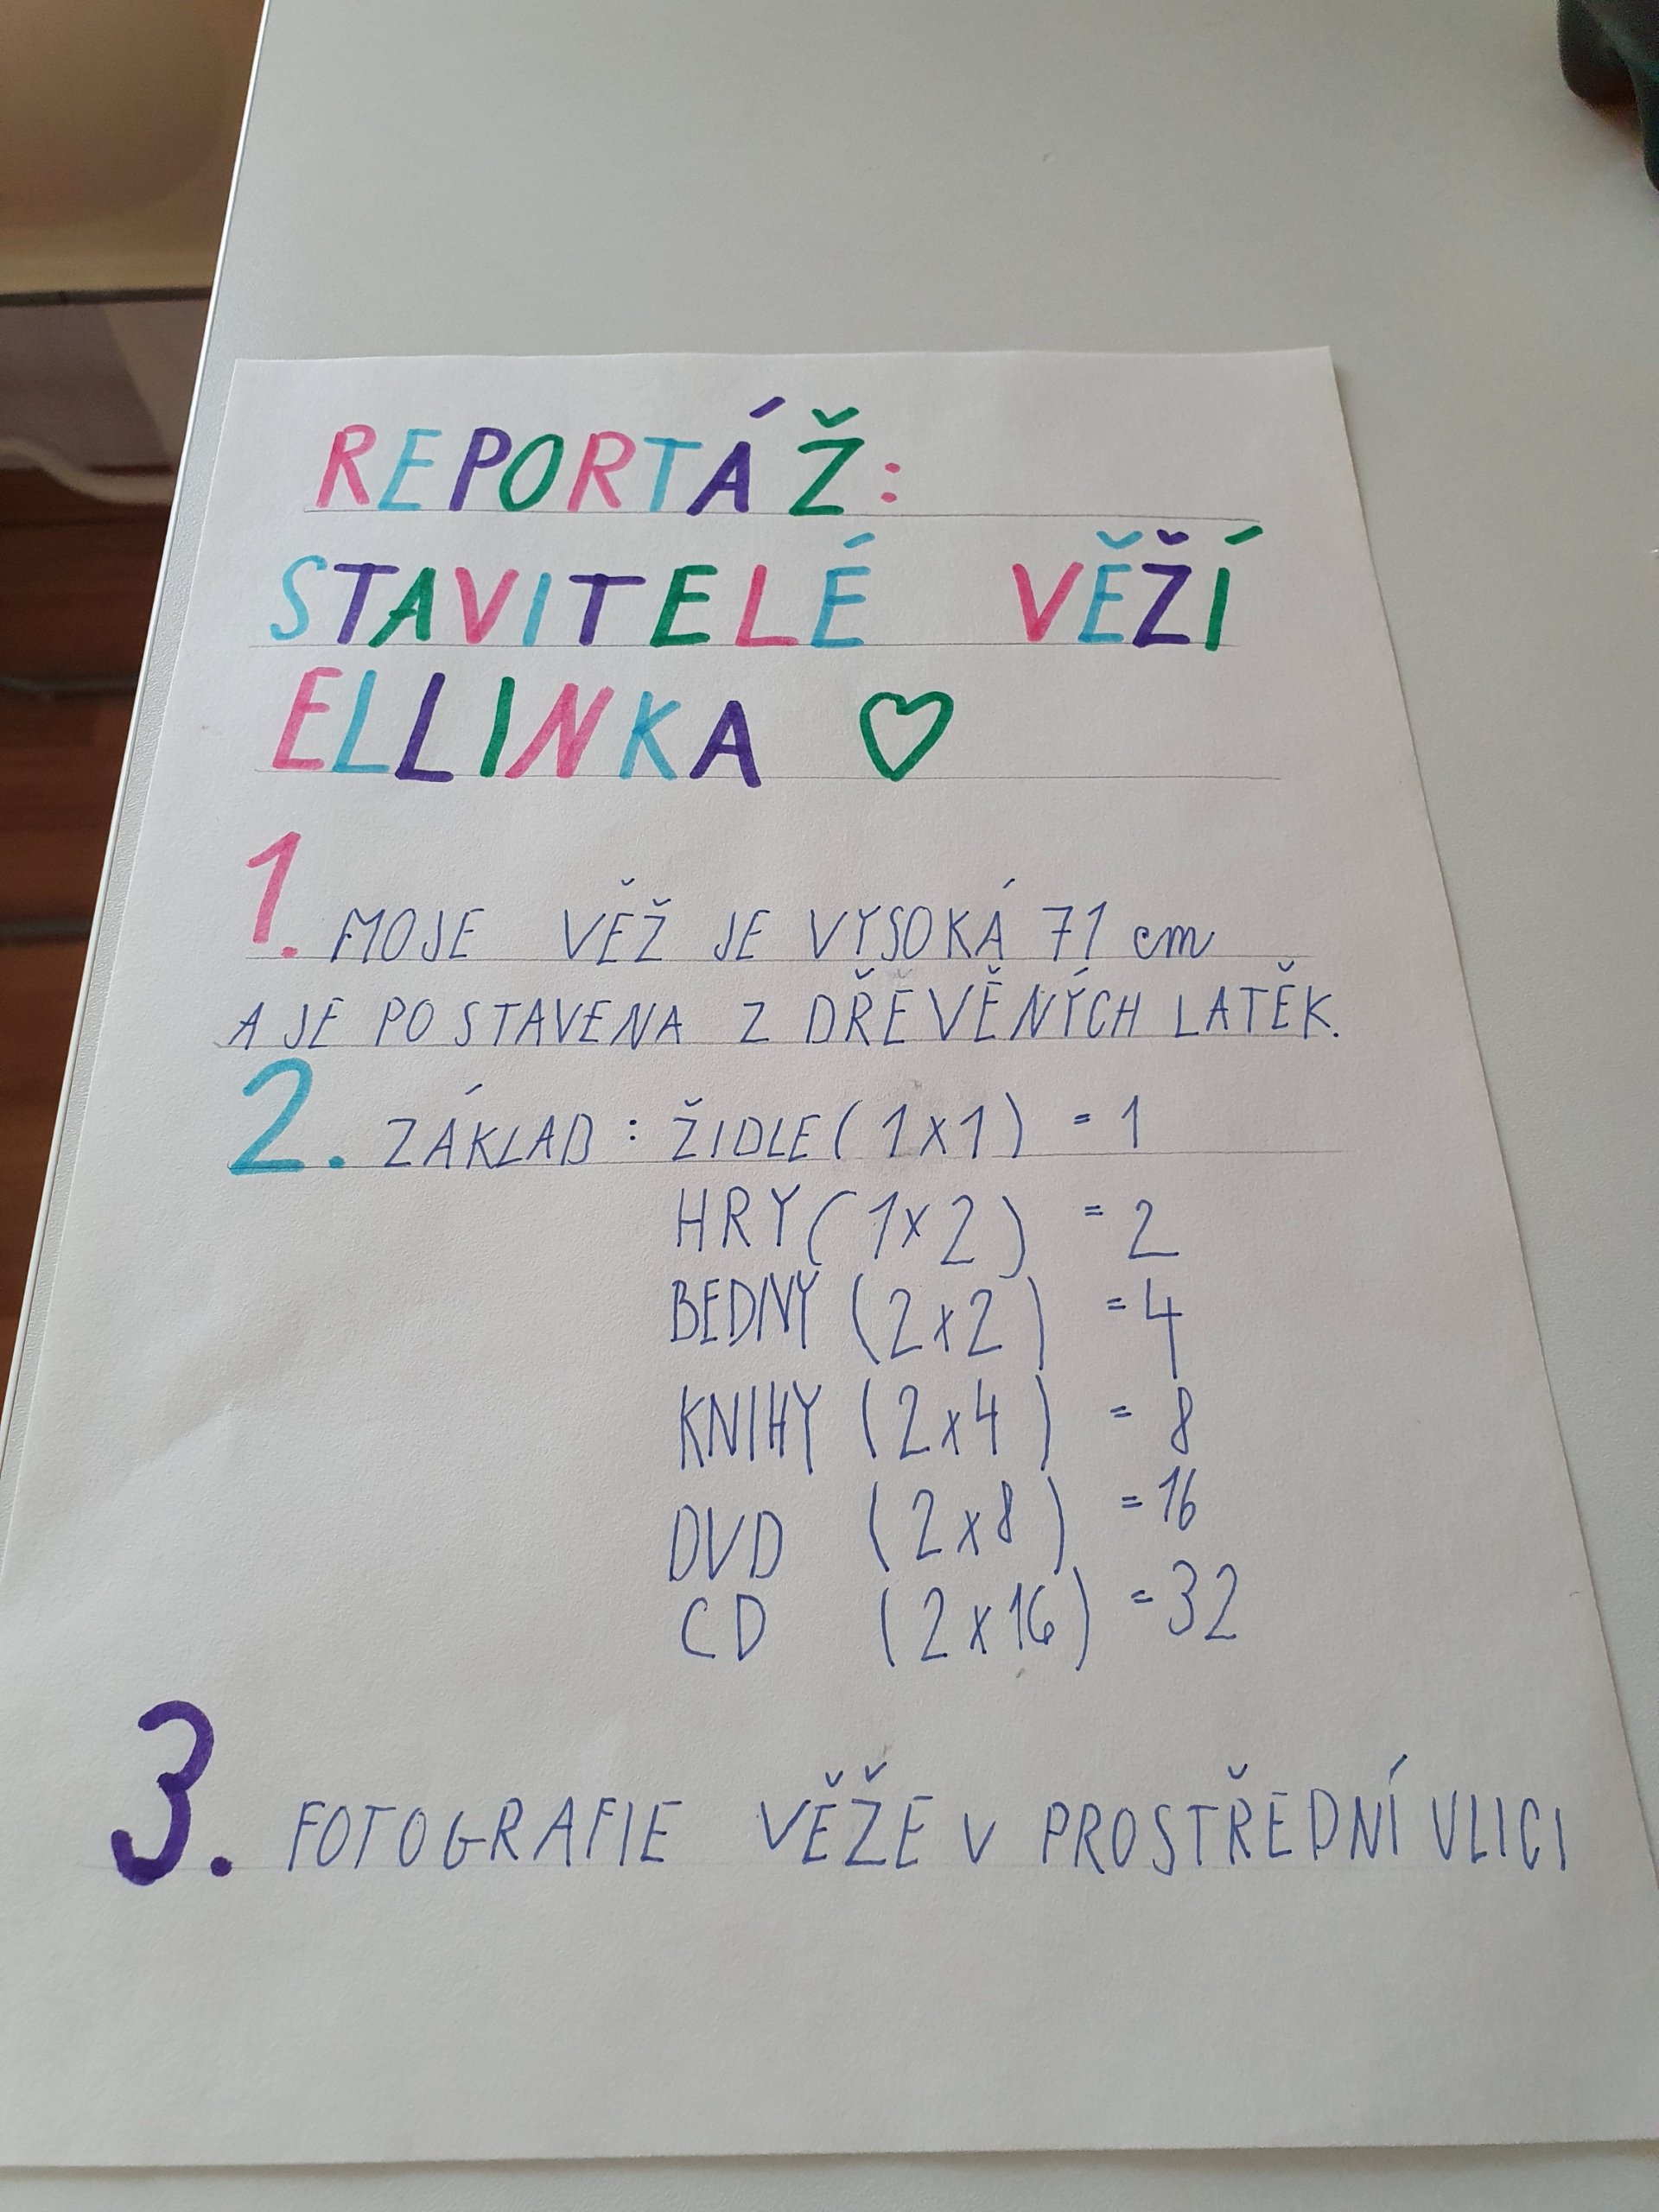 REPORTÁŽ:
STAVITELÉ VĚŽÍ
ELLINKA
1. MOJE VĚŽ JE VYSOKÁ 71 cm
A JE POSTAVENA Z DŘĚVĚNÝCH LATĚK.
2. ZÁKLAD: ŽIDLE (1x1) = 1
HRY (1x2) = 2
BEDNY (2x2) = 4
KNIHY (2x4) = 8
DVD (2x8) = 16
CD (2x16) = 32
3. FOTOGRAFIE VĚŽE V PROSTŘEDNÍ ULICI